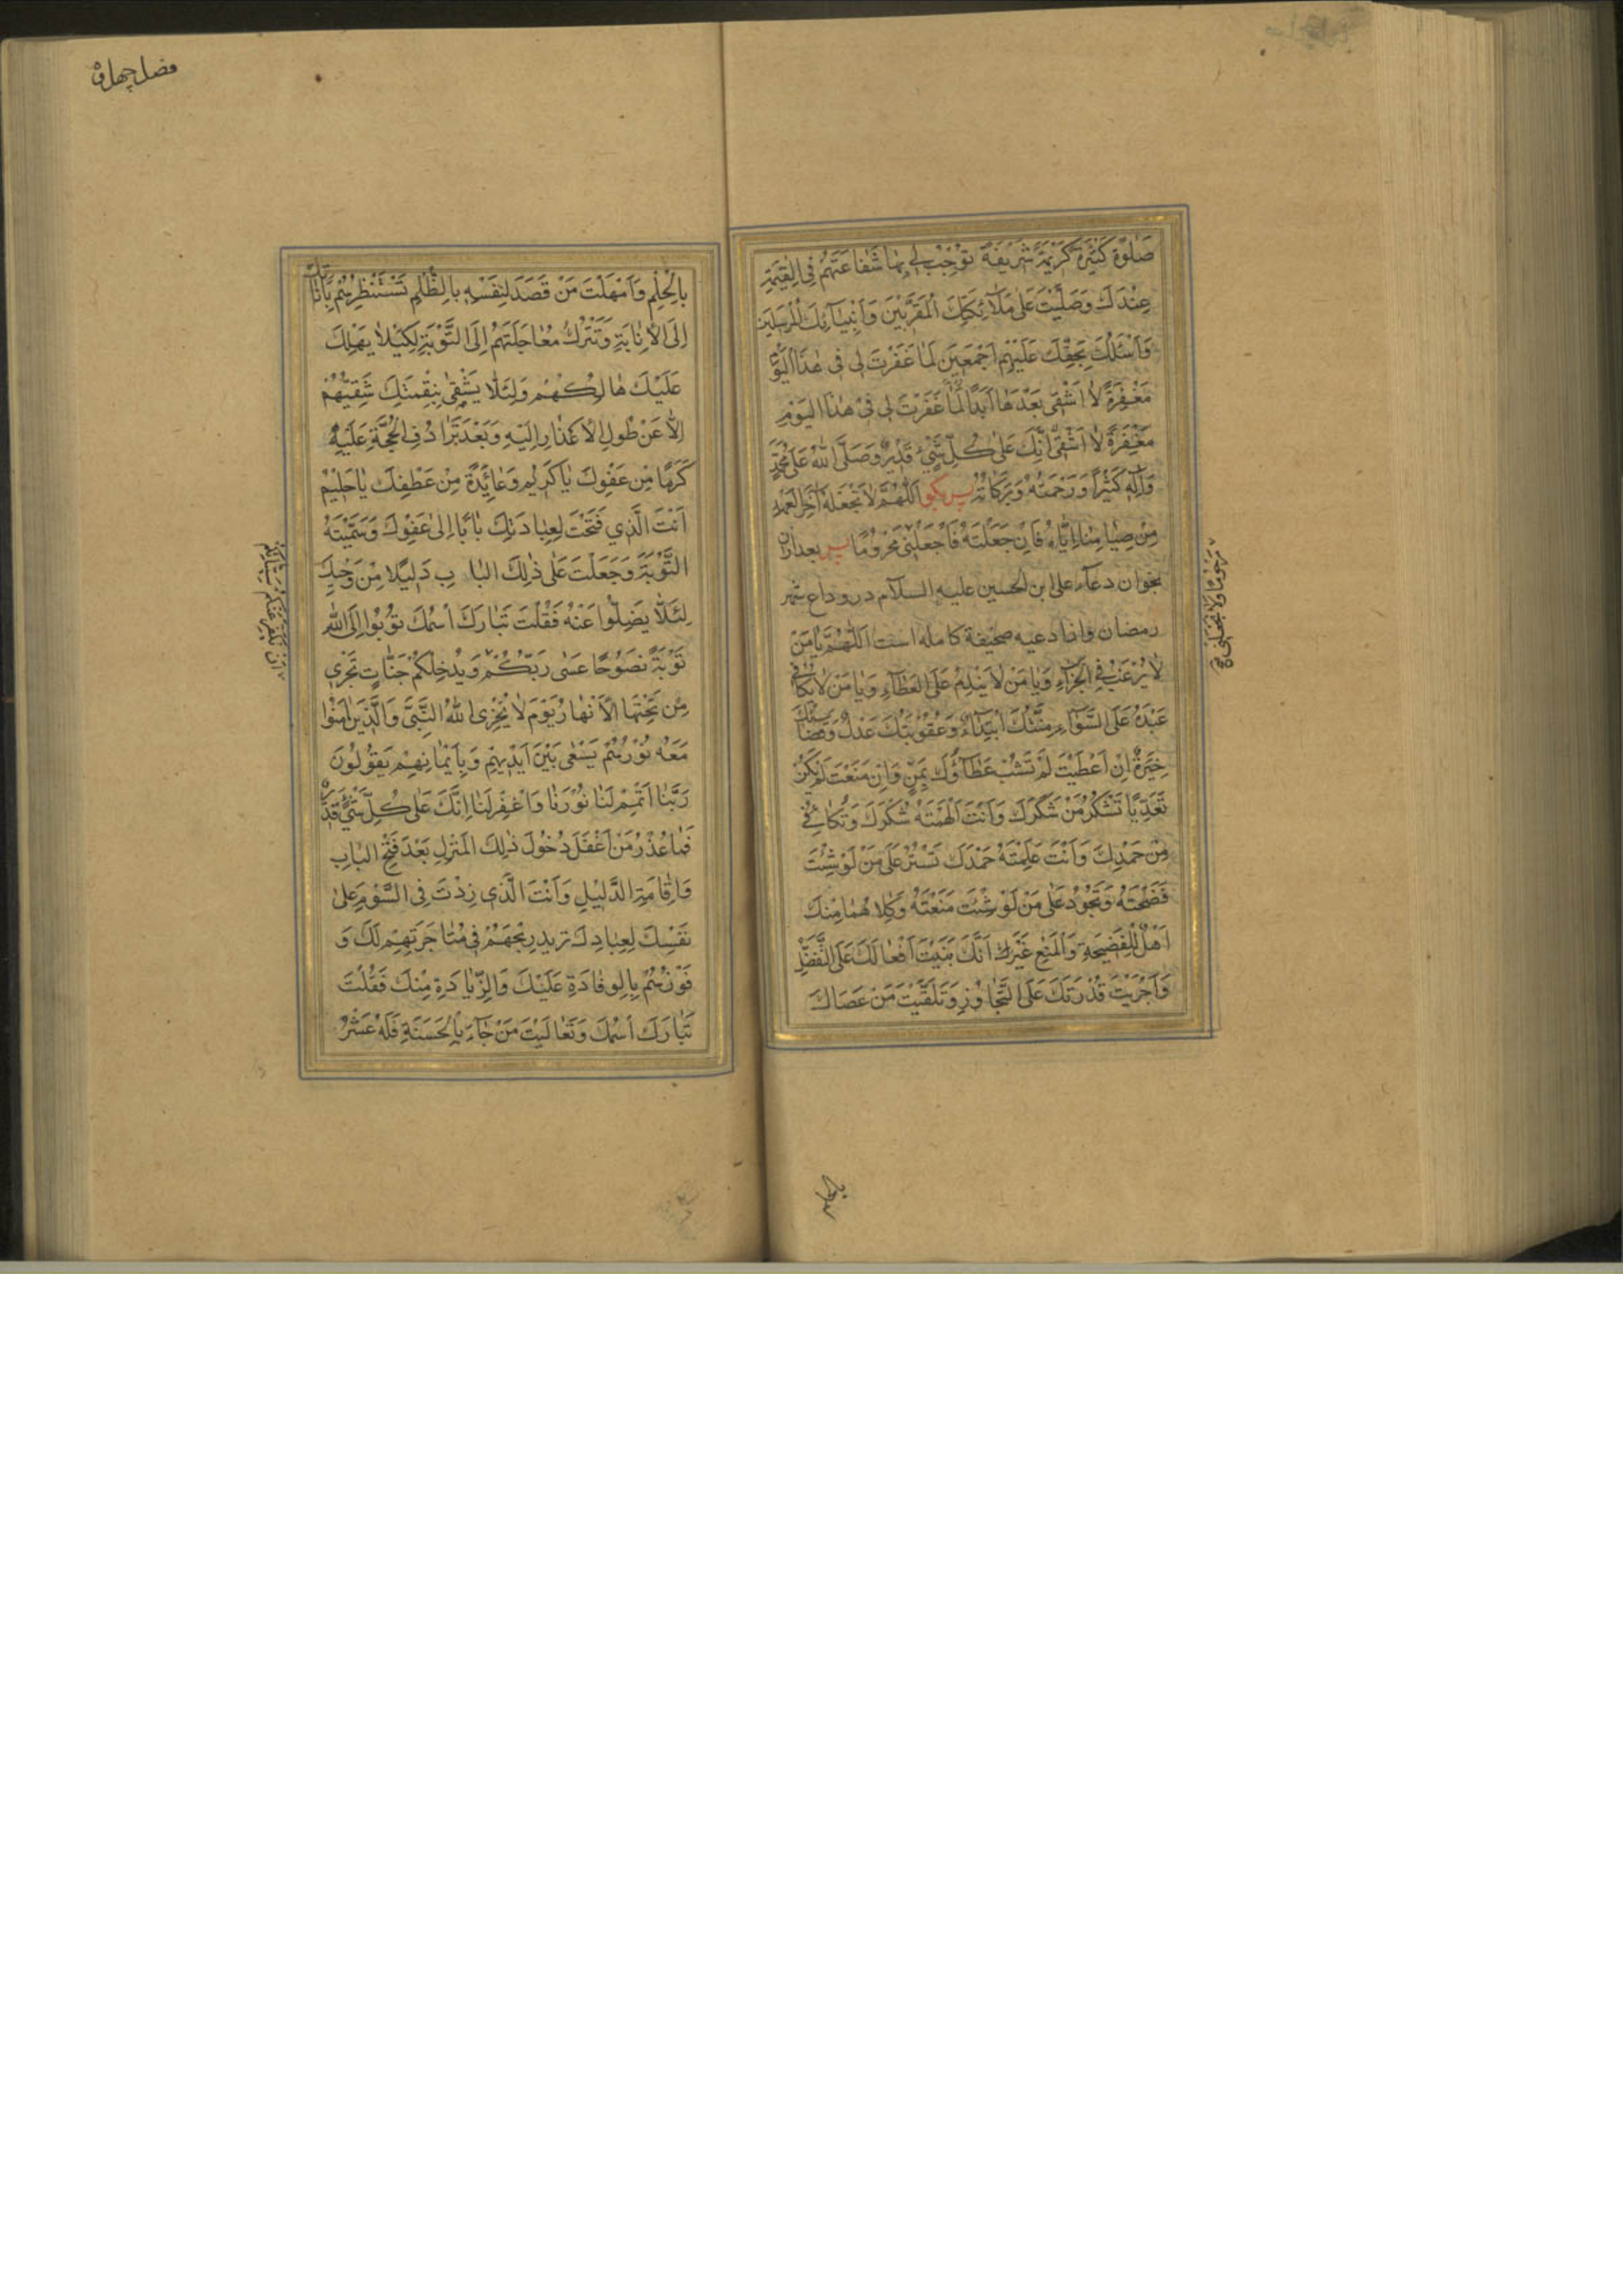 صَلٰوةً كَثيرَةً كَرِيمَةً شَرِيفَةً تُوجِبُ لي بِهٰا شَفٰاعَتَهُمْ فِي الْقِيٰمَةِ
عِنْدَكَ وَصَلَّيْتَ عَلىٰ مَلٰٓائِكَتِكَ الْمُقَرَّبينَ وَاَنْبِيٰٓائِكَ الْمُرْسَلينَ
وَاَسْئَلُكَ بِحَقِّكَ عَلَيْهِمْ اَجْمَعينَ لَمّٰا غَفَرْتَ لي في هٰذَا الْيَوْمِ
مَغْفِرَةً لاٰ اَشْقىٰ بَعْدَهٰا اَبَدًا لَمّٰا غَفَرْتَ لي في هٰذَا الْيَوْمِ
مَغْفِرَةً لاٰ اَشْقىٰ اِنَّكَ عَلىٰ كُلِّ شَيْءٍ قَديرٌ وَصَلَّى اللهُ عَلىٰ مُحَمَّدٍ
وَاٰلِهِ كَثيرًا وَرَحْمَتُهُ وَبَرَكٰاتُهُ پس بگو اَللّٰهُمَّ لاٰ تَجْعَلْهُ اٰخِرَ الْعَهْدِ
مِنْ صِيٰامِنٰا اِيّٰاهُ فَاِنْ جَعَلْتَهُ فَاجْعَلْني مَحْرُومًا پس بعد ازان
بخوان دعآء علی ابن الحسین علیه السلام در وداع شهر
رمضان و از ادعیه صحیفهٔ کامله است اَللّٰهُمَّ يٰا مَنْ
لاٰ يَرْغَبُ فِي الْجَزٰٓاءِ وَيٰا مَنْ لاٰ يَنْدَمُ عَلَى الْعَطٰٓاءِ وَيٰا مَنْ لاٰ يُكٰافي
عَبْدَهُ عَلَى السَّوٰٓاءِ مِنَّتُكَ ابْتِدٰٓاءٌ وَعُقُوبَتُكَ عَدْلٌ وَقَضٰٓاؤُكَ
خِيَرَةٌ اِنْ اَعْطَيْتَ لَمْ تَشُبْ عَطٰٓاؤُكَ بِمَنٍّ وَاِنْ مَنَعْتَ لَمْ يَكُنْ
تَعَدِّيًا تَشْكُرُ مَنْ شَكَرَكَ وَاَنْتَ اَلْهَمْتَهُ شُكْرَكَ وَتُكٰافي
مَنْ حَمِدَكَ وَاَنْتَ عَلَّمْتَهُ حَمْدَكَ تَسْتُرُ عَلىٰ مَنْ لَوْ شِئْتَ
فَضَحْتَهُ وَتَجُودُ عَلىٰ مَنْ لَوْ شِئْتَ مَنَعْتَهُ وَكِلاٰهُمٰا مِنْكَ
اَهْلٌ لِلْفَضيحَةِ وَالْمَنْعِ غَيْرَ اَنَّكَ بَنَيْتَ اَفْعٰالَكَ عَلَى التَّفَضُّلِ
وَاَجْرَيْتَ قُدْرَتَكَ عَلَى التَّجٰاوُزِ وَتَلَقَّيْتَ مَنْ عَصٰاكَ
مَرْحُومًا وَلاٰ تَجْعَلْني
بِالْحِلْمِ وَاَمْهَلْتَ مَنْ قَصَدَ لِنَفْسِهِ بِالظُّلْمِ تَسْتَنْظِرُهُمْ بِاَنٰاتِكَ
اِلَى الْاِنٰابَةِ وَتَتْرُكُ مُعٰاجَلَتَهُمْ اِلَى التَّوْبَةِ لِكَيْلاٰ يَهْلِكَ
عَلَيْكَ هٰالِكُهُمْ وَلِئَلّٰا يَشْقىٰ بِنِقْمَتِكَ شَقِيُّهُمْ
اِلّٰا عَنْ طُولِ الْاِعْذٰارِ اِلَيْهِ وَبَعْدَ تَرٰادُفِ الْحُجَّةِ عَلَيْهِ
كَرَمًا مِنْ عَفْوِكَ يٰا كَريمُ وَعٰائِدَةً مِنْ عَطْفِكَ يٰا حَليمُ
اَنْتَ الَّذي فَتَحْتَ لِعِبٰادِكَ بٰابًا اِلىٰ عَفْوِكَ وَسَمَّيْتَهُ
التَّوْبَةَ وَجَعَلْتَ عَلىٰ ذٰلِكَ الْبٰابِ دَليلًا مِنْ وَحْيِكَ
لِئَلّٰا يَضِلُّوا عَنْهُ فَقُلْتَ تَبٰارَكَ اسْمُكَ تُوبُوا اِلَى اللهِ
تَوْبَةً نَصُوحًا عَسىٰ رَبُّكُمْ وَيُدْخِلَكُمْ جَنّٰاتٍ تَجْري
مِنْ تَحْتِهَا الْاَنْهٰارُ يَوْمَ لاٰ يُخْزِي اللهُ النَّبِيَّ وَالَّذينَ اٰمَنُوا
مَعَهُ نُورُهُمْ يَسْعىٰ بَيْنَ اَيْديهِمْ وَبِاَيْمٰانِهِمْ يَقُولُونَ
رَبَّنٰا اَتْمِمْ لَنٰا نُورَنٰا وَاغْفِرْ لَنٰا اِنَّكَ عَلىٰ كُلِّ شَيْءٍ قَديرٌ
فَمٰا عُذْرُ مَنْ اَغْفَلَ دُخُولَ ذٰلِكَ الْمَنْزِلِ بَعْدَ فَتْحِ الْبٰابِ
وَاِقٰامَةِ الدَّليلِ وَاَنْتَ الَّذي زِدْتَ فِي السَّوْمِ عَلىٰ
نَفْسِكَ لِعِبٰادِكَ تريد رِبْحَهُمْ في مُتٰاجَرَتِهِمْ لَكَ وَ
فَوْزَهُمْ بِالْوِفٰادَةِ عَلَيْكَ وَالزِّيٰادَةِ مِنْكَ فَقُلْتَ
تَبٰارَكَ اسْمُكَ وَتَعٰالَيْتَ مَنْ جٰٓاءَ بِالْحَسَنَةِ فَلَهُ عَشْرُ
اَنْ يُكَفِّرَ عَنْكُمْ سَيِّئٰاتِكُمْ